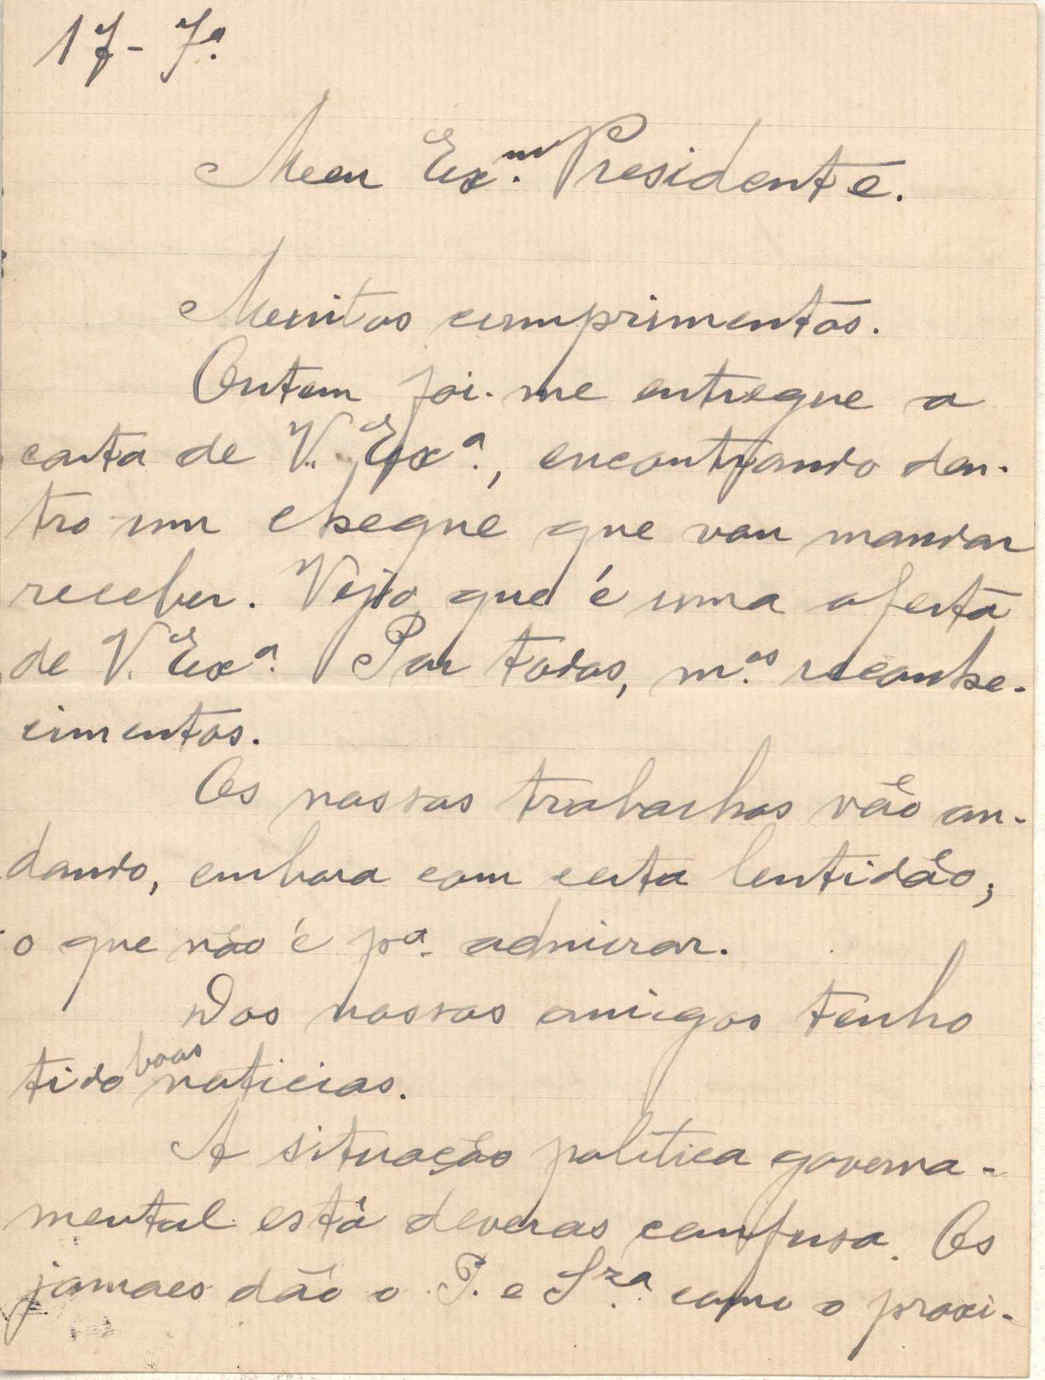 17-7º.
Meu Exmº. Presidente.
Muitos cumprimentos.
Ontem foi-me entregue a
carta de V. Exª., encontrando den-
tro um cheque que vou mandar
receber. Vejo que é uma oferta
de V. Exª. Por todos, m.os reconhe-
cimentos.
Os nossos trabalhos vão an-
dando, embora com certa lentidão,
o que não é pª. admirar.
Dos nossos amigos tenho
tido boas noticias.
A situação politica governa-
mental está deveras confusa. Os
jornaes dão o P. e Sza. como o proxi-